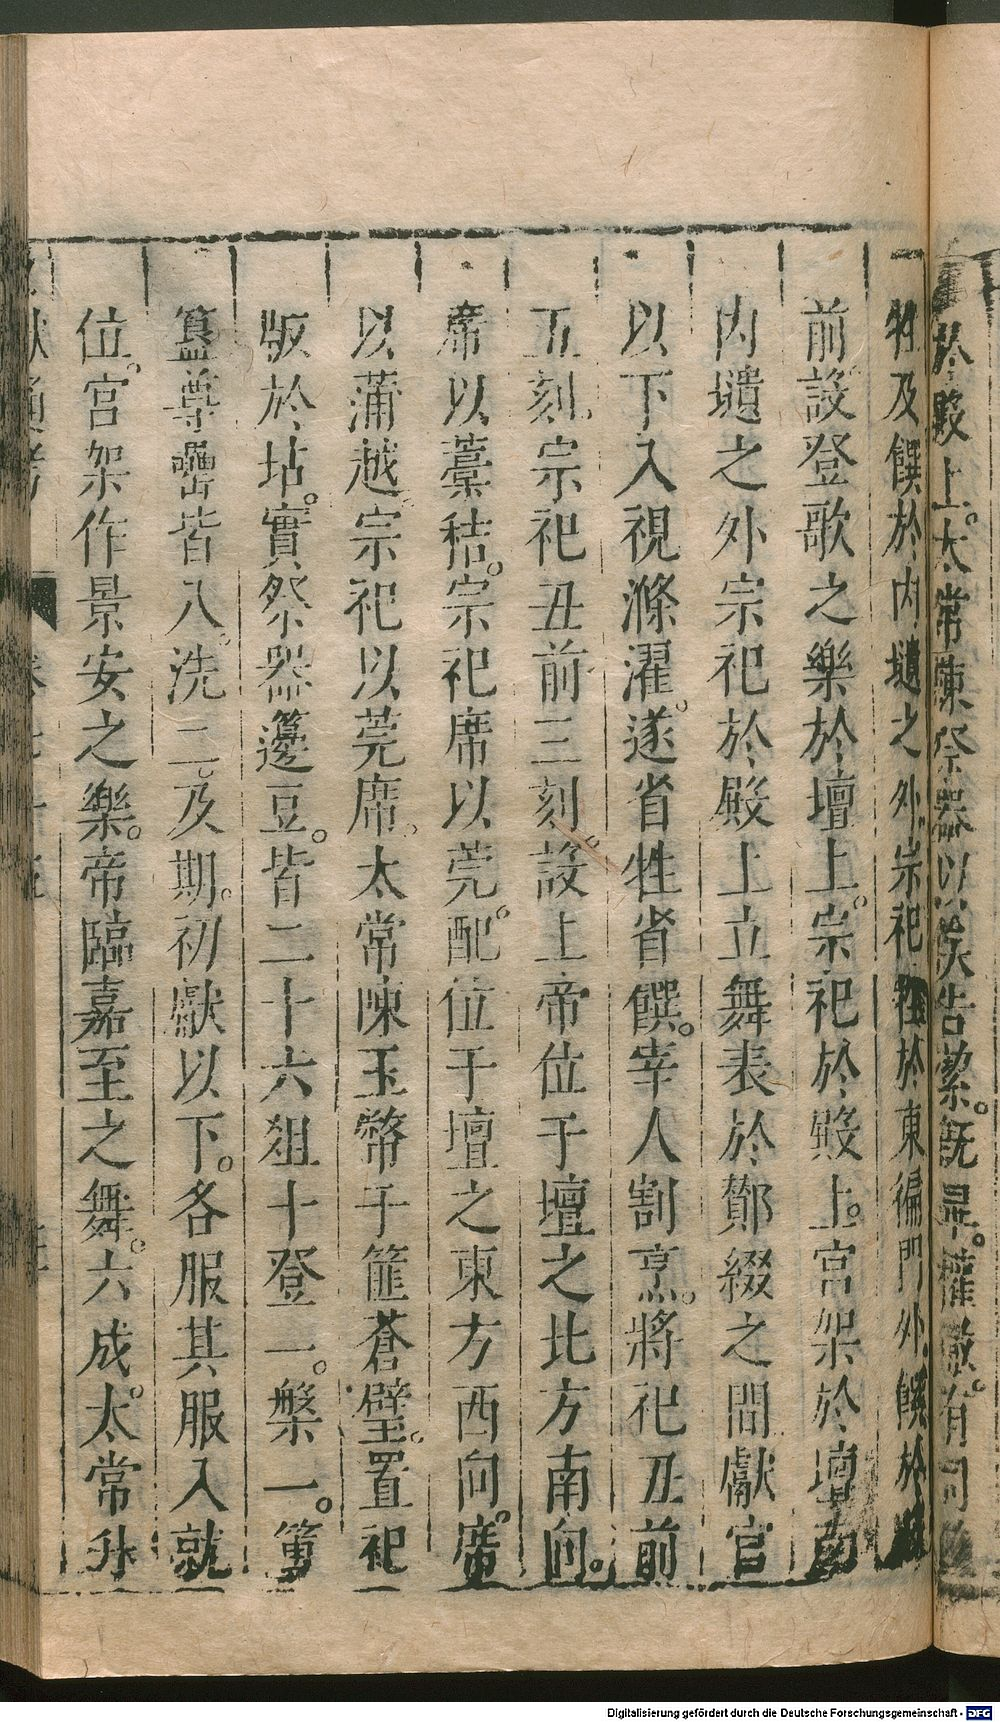 於殿上。太常陳祭器以俟告潔。既畢。權徹。有司
牲及饌於内壝之外。宗祀牲於東徧門外。饌於
前。設登歌之樂於壇上。宗祀於殿上。宮架於壇南
内壝之外宗祀於殿上立舞表於鄼綴之間獻官
以下入視滌濯。遂省牲省饌。宰人割烹。將祀丑前
五刻。宗祀丑前三刻。設上帝位于壇之北方南向。
席以藁秸。宗祀席以莞。配位于壇之東方西向。席
以蒲越宗祀以莞席。太常陳玉幣于篚蒼璧。置祀
版於坫。實祭器籩豆。皆二十六俎十登一。槃一。簠
簋尊罍皆八。洗二。及期。初獻以下。各服其服入就
位。宮架作景安之樂。帝臨嘉至之舞。六成。太常升
Digitalisierung gefördert durch die Deutsche Forschungsgemeinschaft - DFG